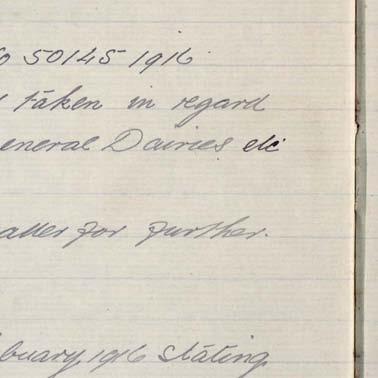 50145 1916
taken in regard
eneral Dairies etc
atter for further.
bruary 1916 stating